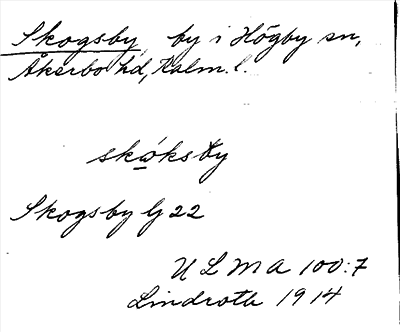 Skogsby, by i Högby sn,
Åkerbo hd, Kalm. l.
Skogsby lj 22
ULMA 100:7
Lindroth 1914